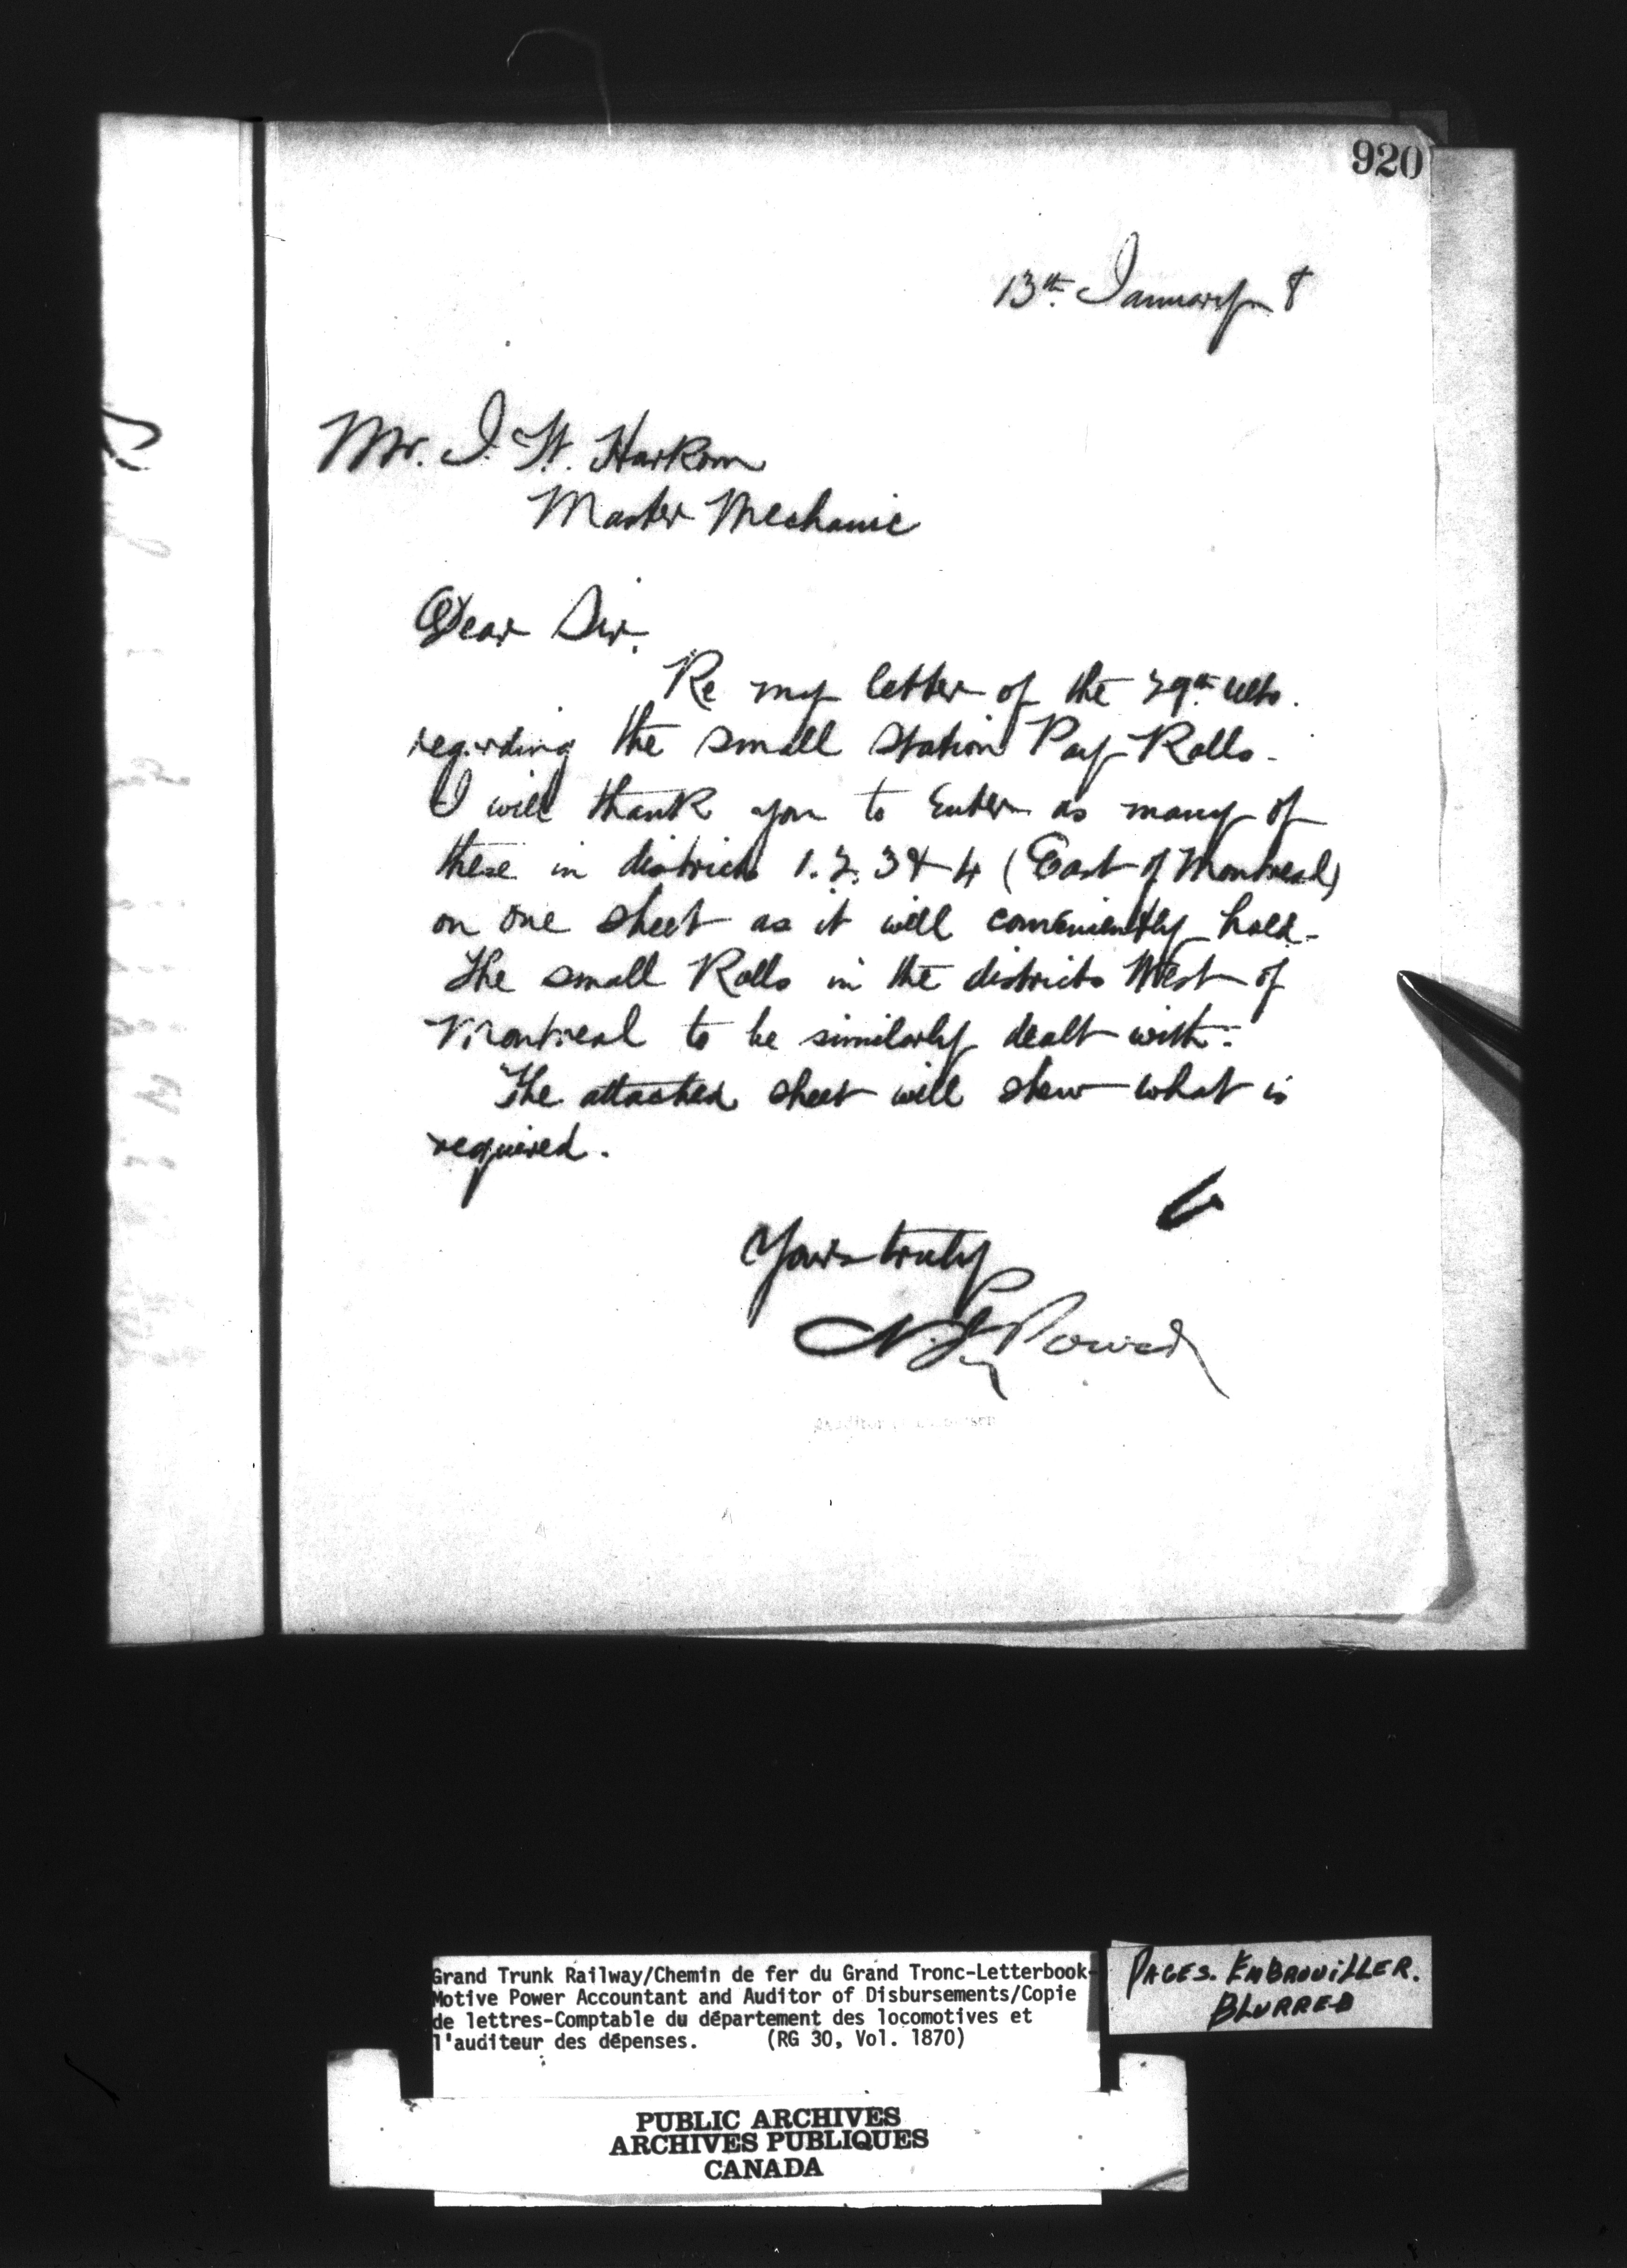 920
13th January 8
Mr. J. W. Harkom
Master Mechanic
Dear Sir.
Re my letter of the 29th ulto.
regarding the small station Pay Rolls -
I will thank you to Enter as many of
these in districts 1. 2. 3 & 4 (East of Montreal)
on one sheet as it will conveniently hold -
The small Rolls in the districts West of
Montreal to be similarly dealt with :-
The attached sheet will shew what is
required.
Yours truly
N. J. Power
Auditor
Grand Trunk Railway/Chemin de fer du Grand Tronc-Letterbook-
Motive Power Accountant and Auditor of Disbursements/Copie
de lettres-Comptable du département des locomotives et
l'auditeur des dépenses. (RG 30, Vol. 1870)
PAGES. EMBROUILLER.
BLURRED
PUBLIC ARCHIVES
ARCHIVES PUBLIQUES
CANADA